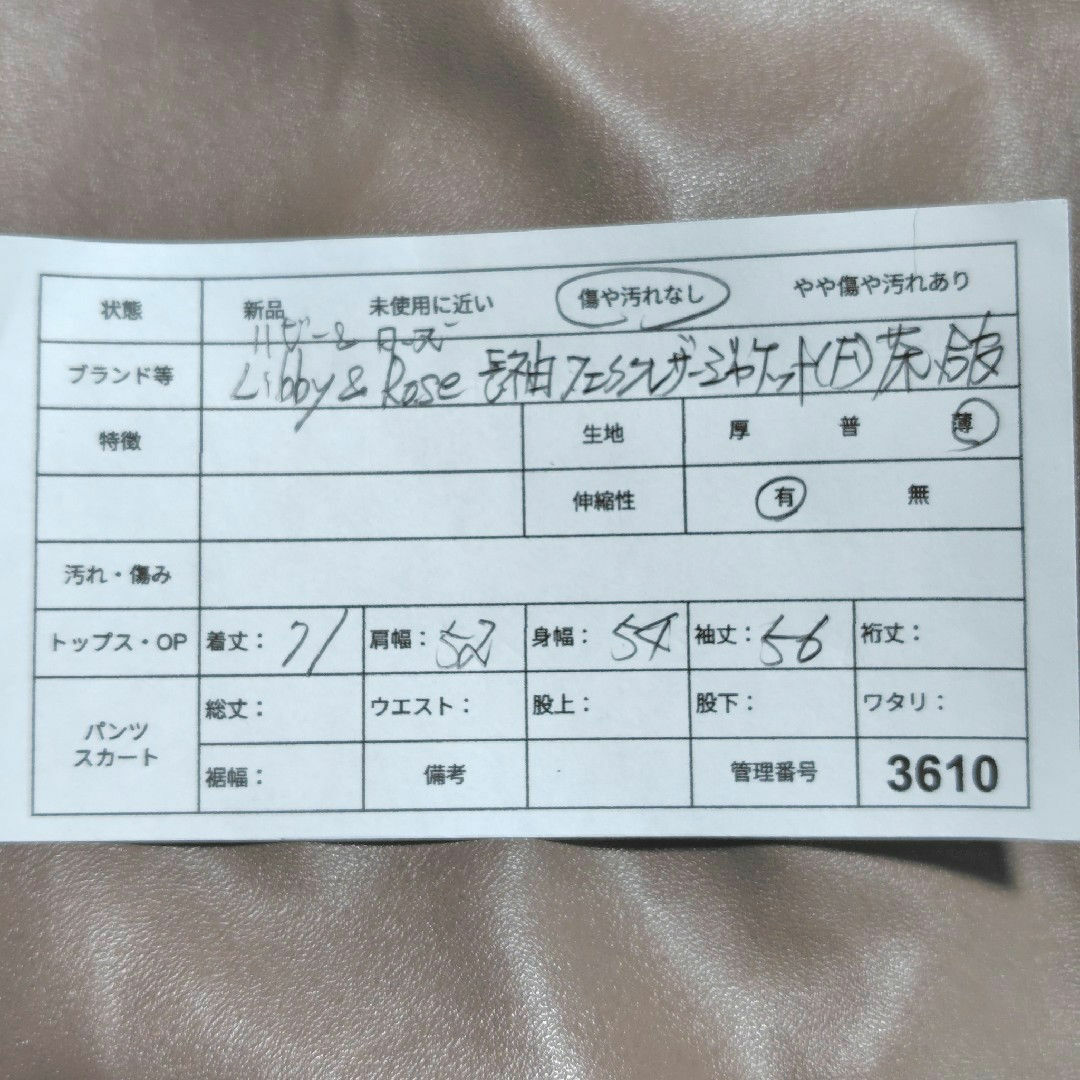 状態 新品 未使用に近い 傷や汚れなし やや傷や汚れあり
リビー& ローズ
ブランド等 Libby & Rose 長袖フェイクレザージャケット(F)茶、合皮
特徴 生地 厚 普 薄
伸縮性 有 無
汚れ・傷み
トップス・OP 着丈: 71 肩幅: 52 身幅: 54 袖丈: 56 裄丈:
パンツ スカート 総丈: ウエスト: 股上: 股下: ワタリ:
裾幅: 備考 管理番号 3610